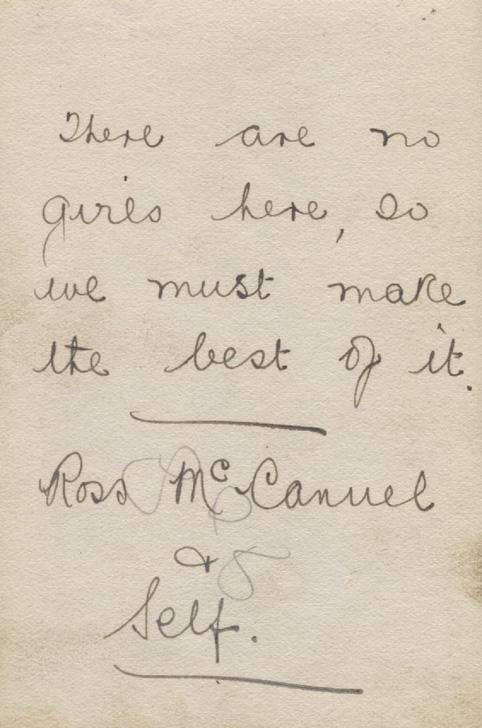 There are no
girls here, so
we must make
the best of it.
Ross McCanuel
&
Self.